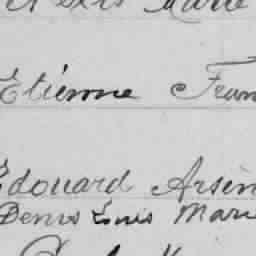 Marie
Etiénne Fran
Edouard Arsin
Denis Louis Mari